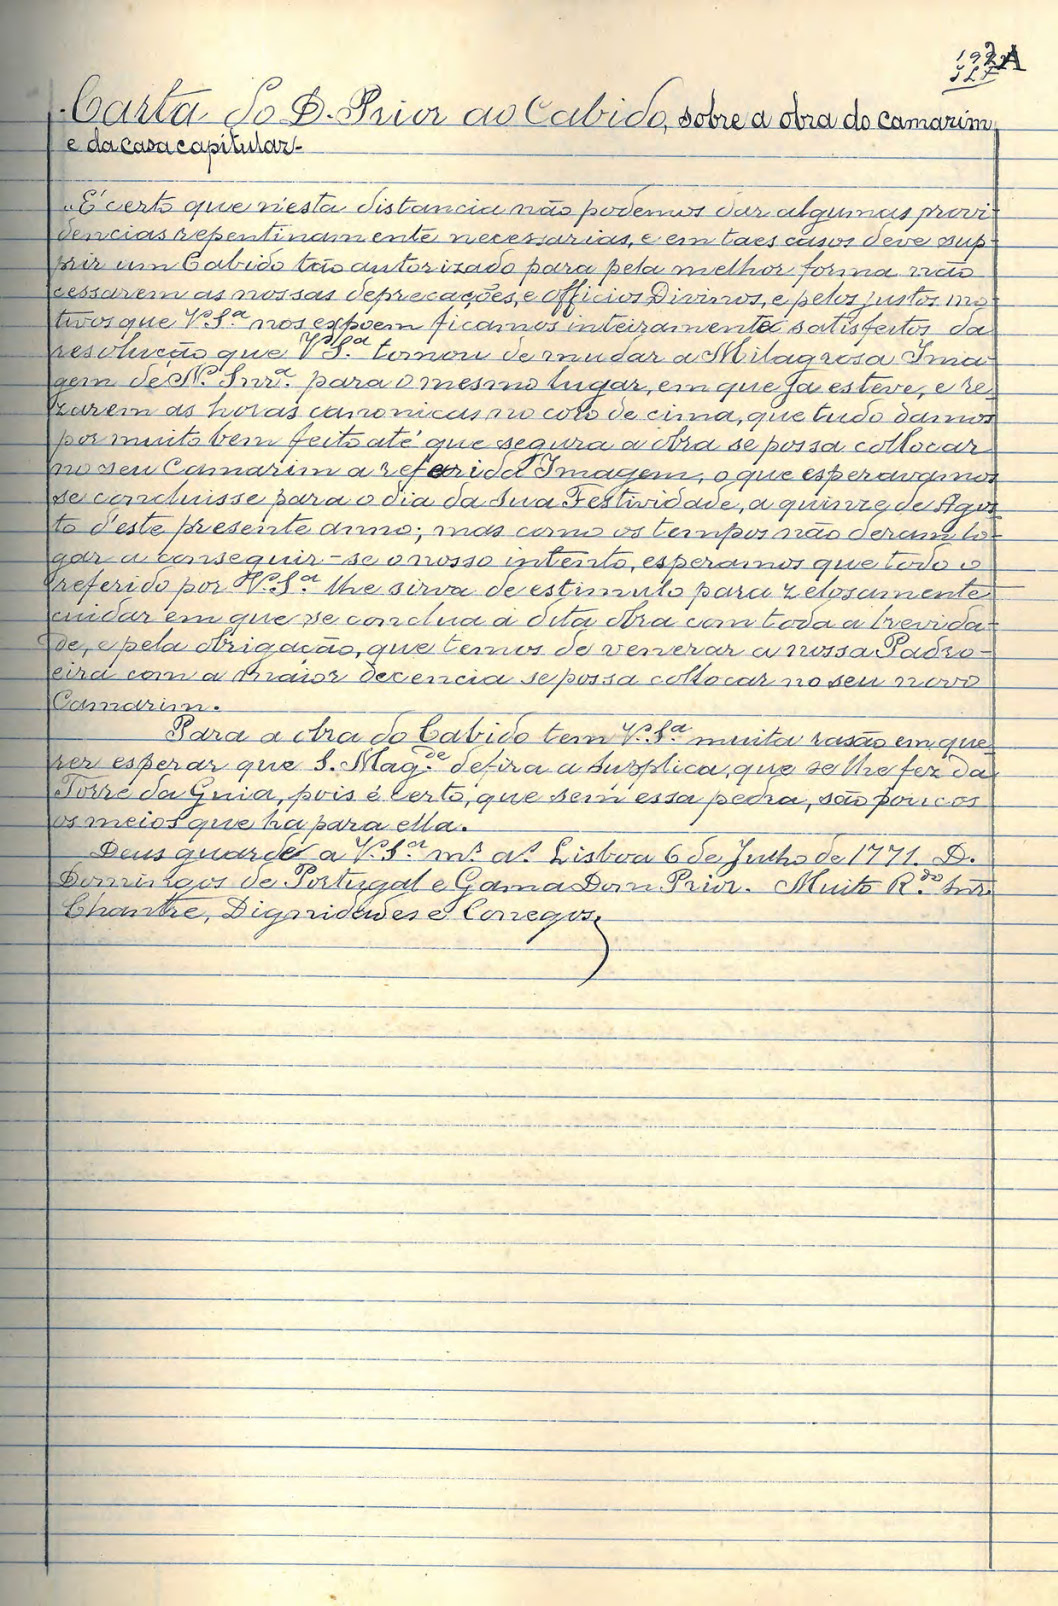 Carta do D. Prior ao Cabido, sobre a obra do camarim
e da casa capitular-
"É certo que n'esta distancia não podemos dar algumas provi-
dencias repentinamente necessarias, e em taes casos deve sup-
prir um Cabido tão autorisado para pela melhor forma não
cessarem as nossas deprecações, e officios Divinos, e pelos justos mo-
tivos que V. S.ª nos expoem ficamos inteiramente satisfeitos da
resolução que V. S.ª tomou de mudar a Milagrosa Ima-
gem de N.ª Snr.ª para o mesmo lugar, em que ja esteve, e re-
zarem as horas canonicas no coro de cima, que tudo damos
por muito bem feito até que segura a obra se possa collocar
no seu Camarim a referida Imagem, o que esperavamos
se concluisse para o dia da sua Festividade, a quinze de Agos-
to d'este presente anno; mas como os tempos não deram lo-
gar a conseguir-se o nosso intento, esperamos que todo o
referido por V. S.ª lhe sirva de estimulo para zelosamente
cuidar em que se conclua a dita obra com toda a brevida-
de, e pela obrigação, que temos de venerar a nossa Padro-
eira com a maior decencia se possa collocar no seu novo
Camarim.
Para a obra do Cabido tem V. S.ª muita rasão em que-
rer esperar que S. Mag.de defira a supplica, que se lhe fez da
Torre da Guia, pois é certo, que sem essa pedra, são poucos
os meios que ha para ella.
Deus guarde a V. S.ª m.s a.s Lisboa 6 de Julho de 1771. D.
Domingos de Portugal e Gama Dom Prior. Muito R.do Snr.
Chantre, Dignidades e Conegos.